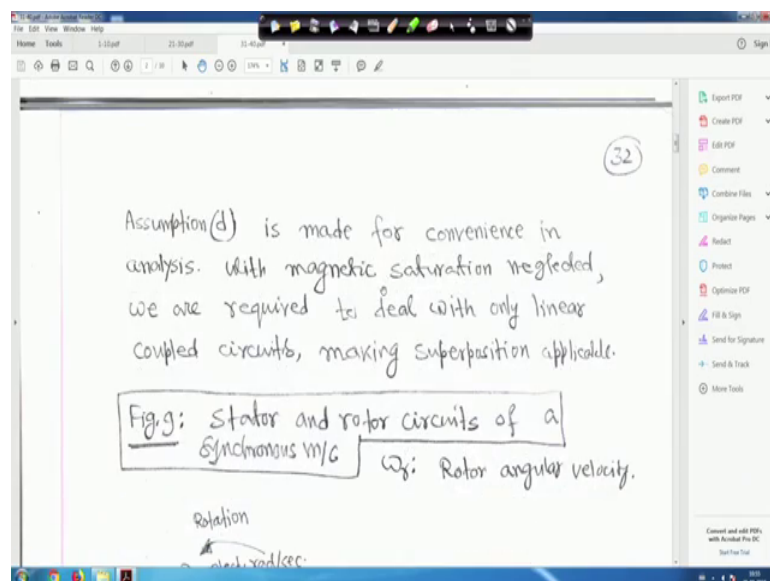 31-40.pdf - Adobe Acrobat Reader DC
File Edit View Window Help
Home Tools 1-10.pdf 21-30.pdf 31-40.pdf Sign
Export PDF
Create PDF
Edit PDF
Comment
Combine Files
Organize Pages
Redact
Protect
Optimize PDF
Fill & Sign
Send for Signature
Send & Track
More Tools
Convert and edit PDFs
with Acrobat Pro DC
Start Free Trial
32
Assumption(d) is made for convenience in
analysis. With magnetic saturation neglected,
we are required to deal with only linear
coupled circuits, making superposition applicable.
Fig.9: Stator and rotor circuits of a
synchronous m/c
ωr: Rotor angular velocity.
Rotation
elect. rad/sec.